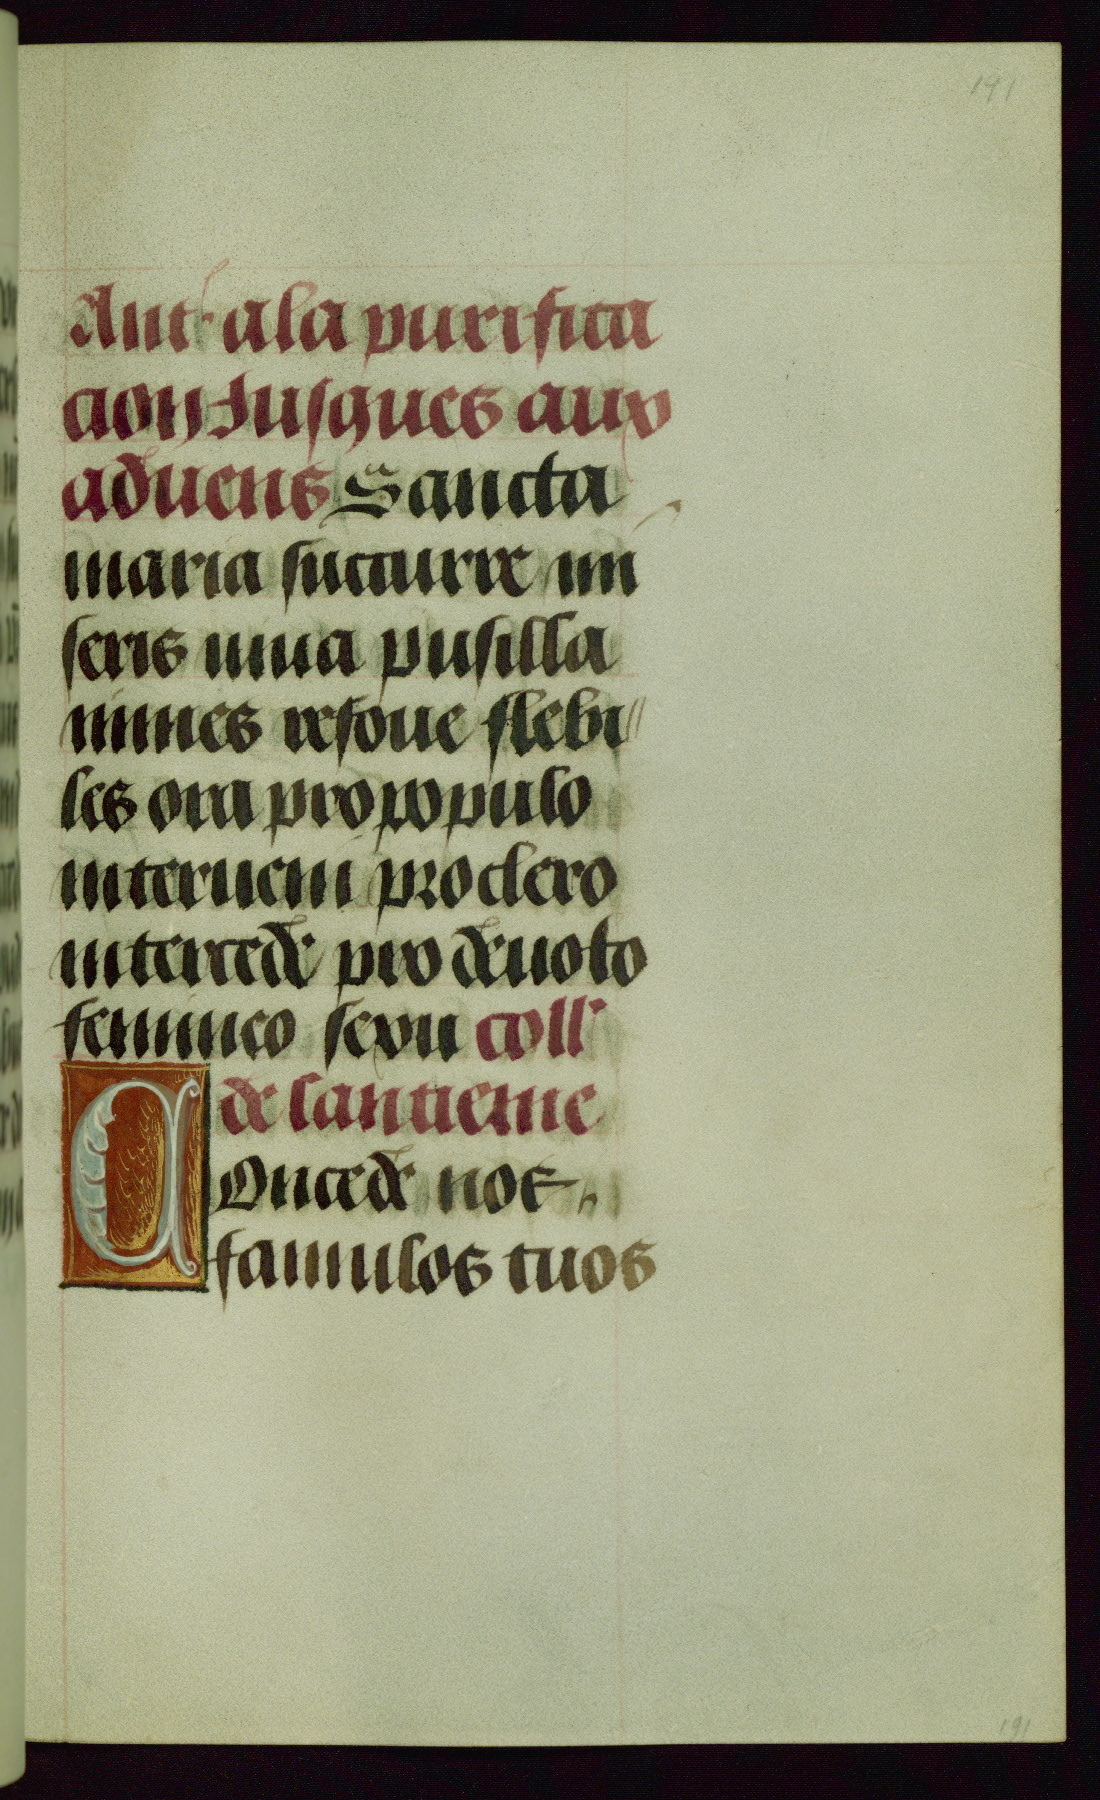 191
Ant' a la purifica
cion Jusques aux
aduens Sancta
maria succurre mi
seris iuua pusilla
nimes refoue flebi
les ora pro populo
interueni pro clero
intercede pro deuoto
femineo sexu coll'
de lantienne
Concede nos
famulos tuos
191